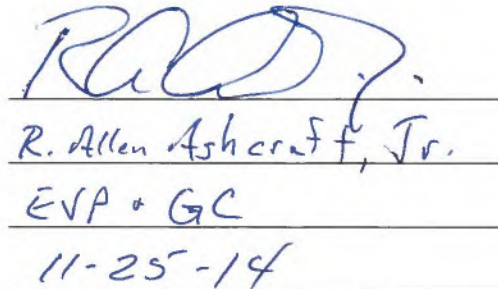 R. Allen Ashcraft, Jr.
EVP + GC
11-25-14